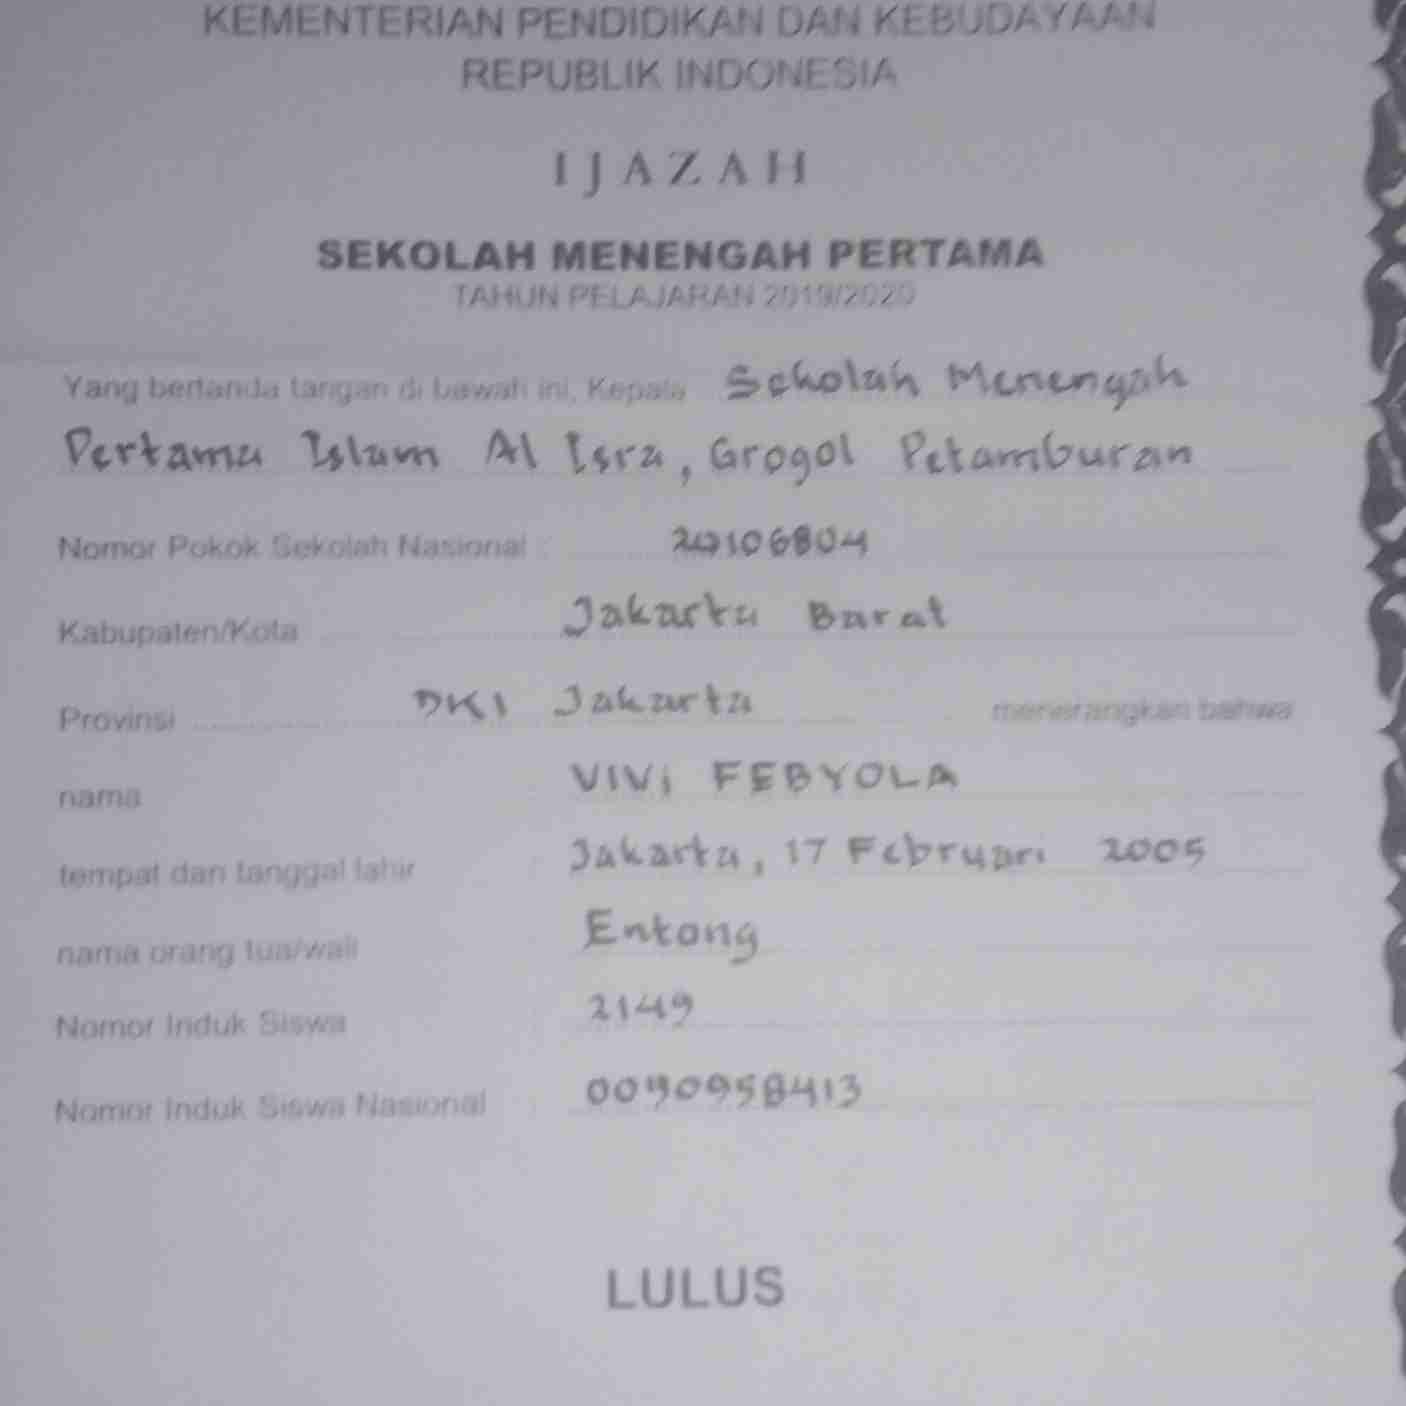 KEMENTERIAN PENDIDIKAN DAN KEBUDAYAAN
REPUBLIK INDONESIA
IJAZAH
SEKOLAH MENENGAH PERTAMA
TAHUN PELAJARAN 2019/2020
Yang bertanda tangan di bawah ini, Kepala Sekolah Menengah
Pertama Islam Al Isra, Grogol Petamburan
Nomor Pokok Sekolah Nasional : 20106804
Kabupaten/Kota Jakarta Barat
Provinsi DKI Jakarta menerangkan bahwa
nama VIVi FEBYOLA
tempat dan tanggal lahir Jakarta, 17 Februari 2005
nama orang tua/wali Entong
Nomor Induk Siswa 2149
Nomor Induk Siswa Nasional : 0090958413
LULUS